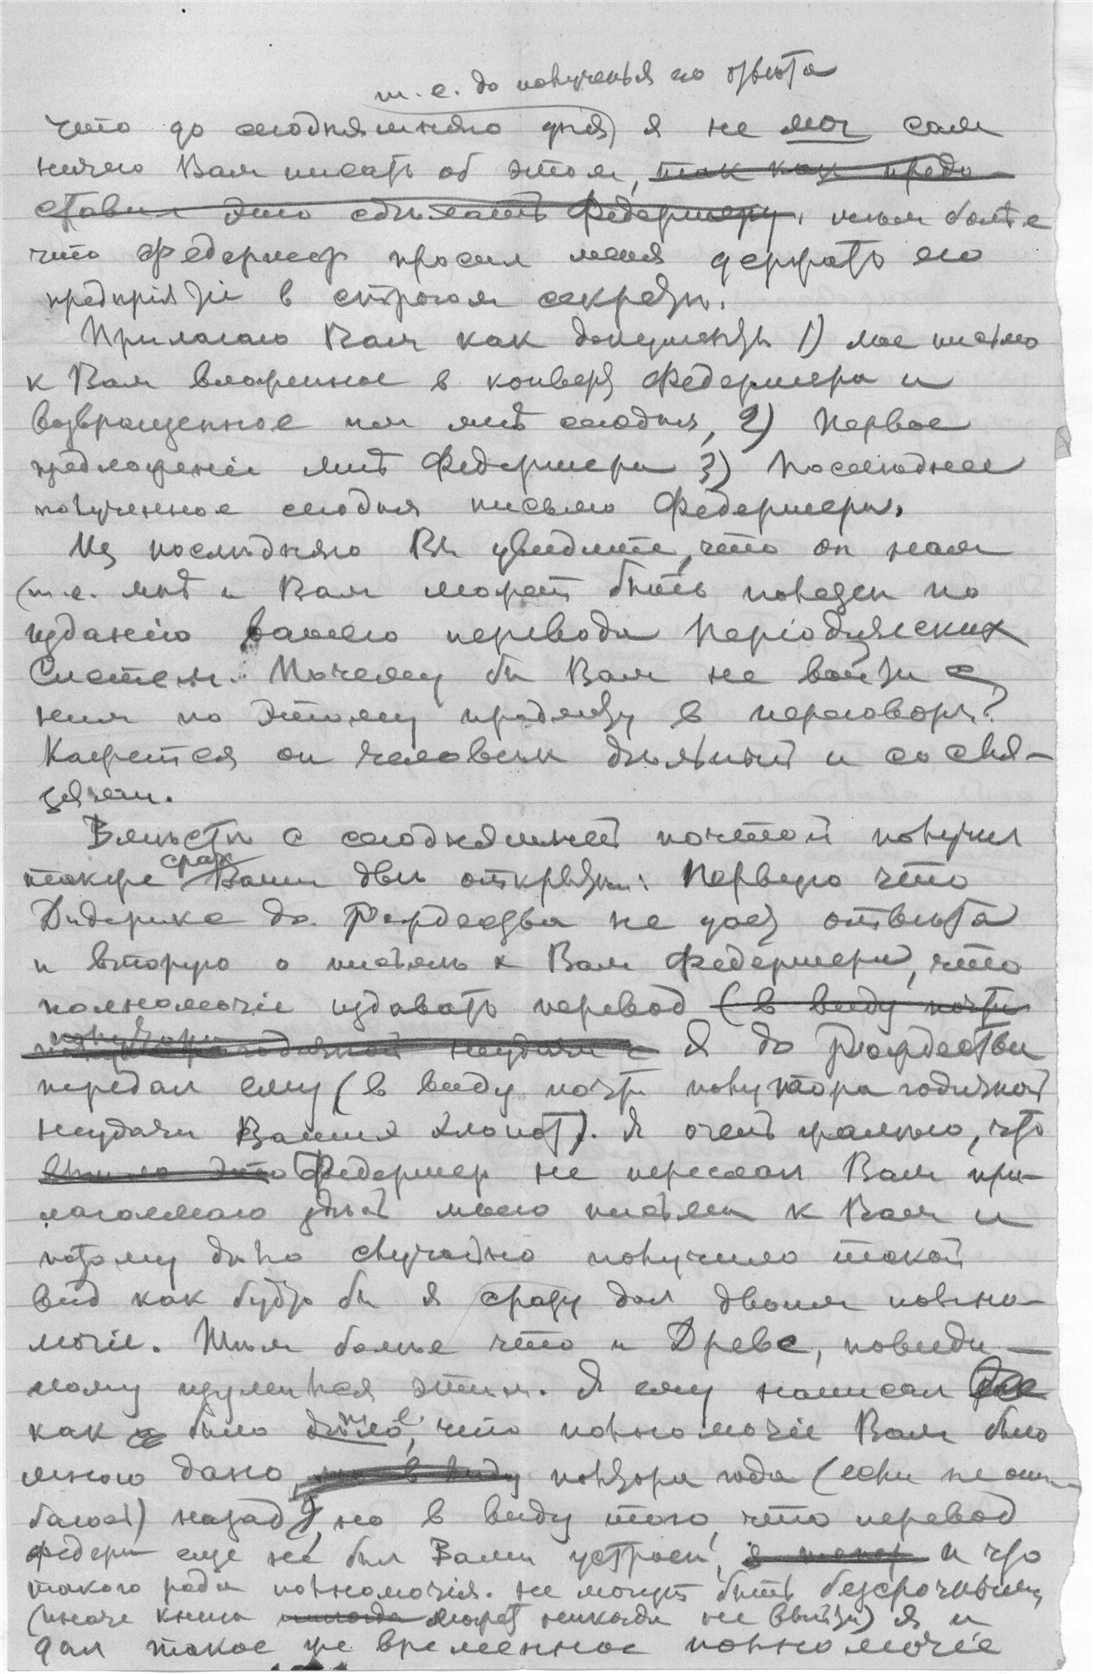 т. е. до полученья его отвѣта
что до сегодняшняго дня) я не мог сам
ничего Вам писать об этом, так как предо-
ставил это сдѣлать Федермееру, тѣм болѣе
что Федермеер просил меня держать его
предпріятіе в строгом секретѣ.
Прилагаю Вам как документы 1) мое письмо
к Вам вложенное в конверт Федермеера и
возвращенное им мнѣ сегодня, 2) Первое
предложеніе мнѣ Федермеера 3) Последнее
полученное сегодня письмо Федермеера.
Из послѣдняго Вы увидите, что он нам
(т. е. мнѣ и Вам может быть полезен по
изданію Вашего перевода Періодических
Систем. Почему бы Вам не войти с
ним по этому предмету в переговоры?
Кажется он человѣк дѣльный и со свя-
зями.
Вмѣстѣ с сегодняшней почтой получил
также сразу Ваши двѣ открытки: Первую что
Дидерикс до Рождества не даст отвѣта
и вторую о письмѣ к Вам Федермеера, что
полномочіе издавать перевод (в виду почти
полутора годичной неудачи с Я до Рождества
передал ему (в виду почти полутора годичной
неудачи Ваших хлопот). Я очень жалѣю, что
Федермеер не переслал Вам при-
лагаемаго здѣсь моего письма к Вам и
потому дѣло случайно получило такой
вид как будто бы я сразу дал двоим полно-
мочіе. Тѣм более что и Древс, повиди-
мому изумился этим. Я ему написал
как было дѣло, что полномочіе Вам было
мною дано полтора года (если не оши-
баюсь) назад, но в виду того, что перевод
Федерм еще не был Вами устроен, и что
такого рода полномочія не могут быть безсрочными
(иначе книга никогда может никогда не выйти) я и
дал такое же временное полномочіе